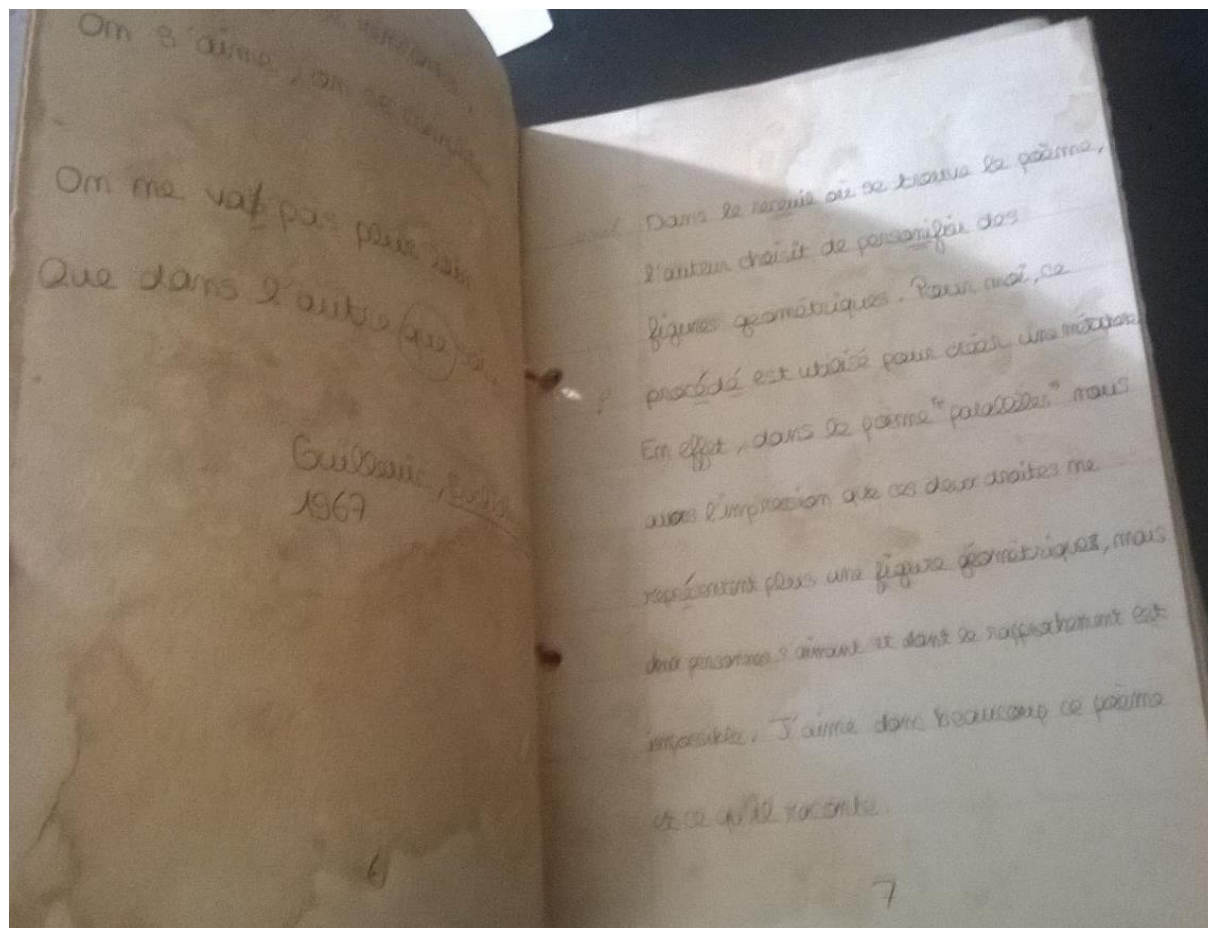 On s'aime, on se
On ne va pas plus loin
Que dans l'autre que soi.
Guillevic,
1967
6
Dans le receuie où se trouve le poème,
l'auteur choisit de personifier des
figures geométriques. Pour moi, ce
procédé est utilisé pour créer une métaphore
En effet, dans le poème "parallèles" nous
avons l'impression que ces deux droites ne
représentent plus une figure géométriques, mais
deux personnes s'aimant et dont le rapprochement est
impossible. J'aime donc beaucoup ce poème
et ce qu'il raconte.
7